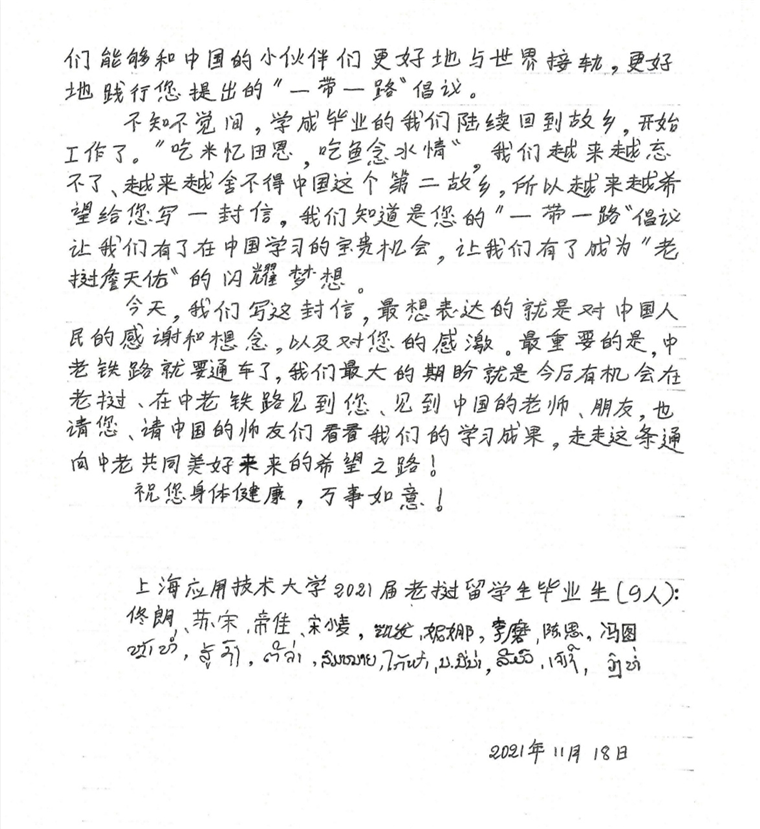 们能够和中国的小伙伴们更好地与世界接轨，更好
地践行您提出的“一带一路”倡议。
不知不觉间，学成毕业的我们陆续回到故乡，开始
工作了。“吃米忆田恩，吃鱼念水情”，我们越来越忘
不了、越来越舍不得中国这个第二故乡，所以越来越希
望给您写一封信，我们知道是您的“一带一路”倡议
让我们有了在中国学习的宝贵机会，让我们有了成为“老
挝詹天佑”的闪耀梦想。
今天，我们写这封信，最想表达的就是对中国人
民的感谢和想念，以及对您的感激。最重要的是，中
老铁路就要通车了，我们最大的期盼就是今后有机会在
老挝、在中老铁路见到您、见到中国的老师、朋友，也
请您、请中国的师友们看看我们的学习成果，走走这条通
向中老共同美好未来的希望之路！
祝您身体健康，万事如意！
上海应用技术大学2021届老挝留学生毕业生（9人）：
佟朗、苏宋、帝佳、宋小凌，凯红，妮娜，李磨，陆思，冯图
2021年11月18日